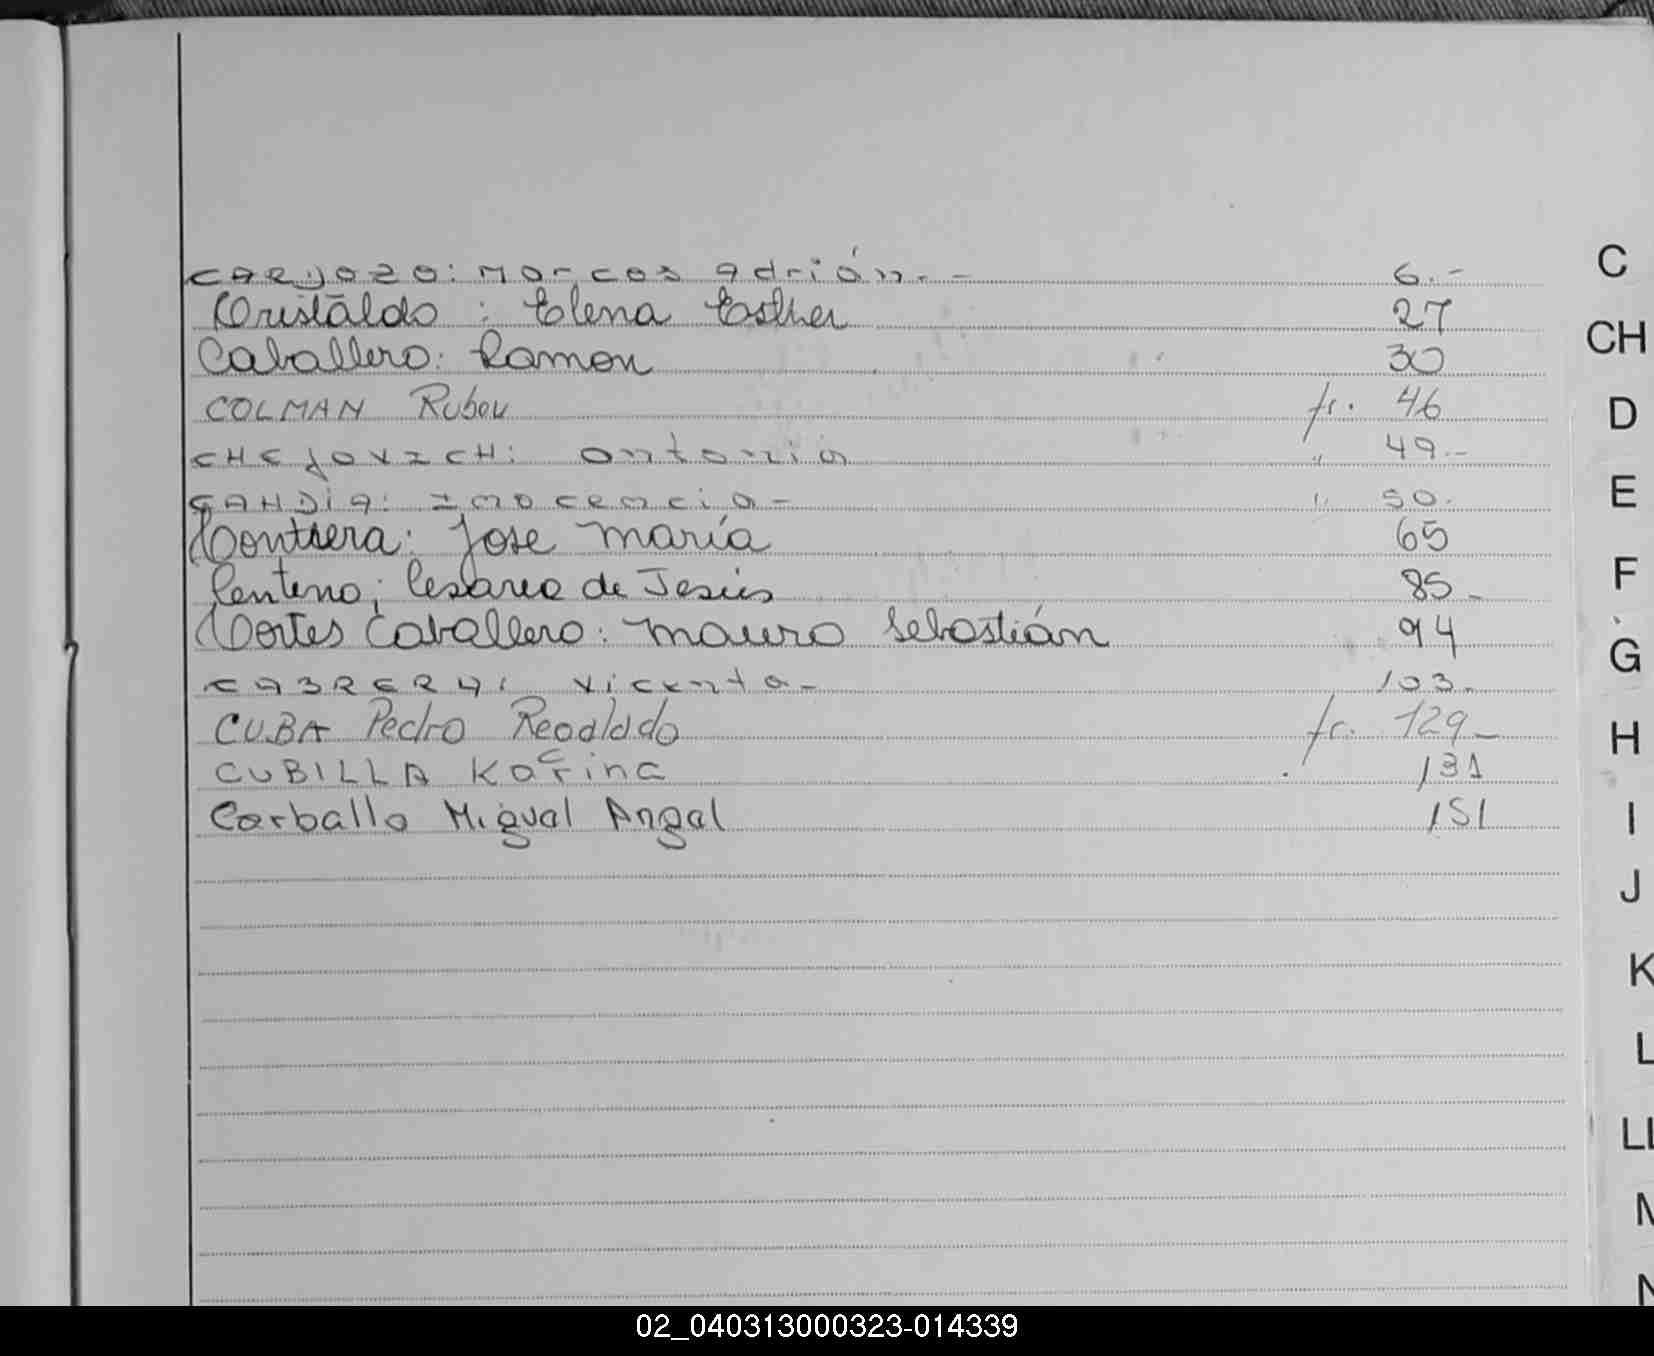 CARDOZO: Marcos Adrián.- 6.-
Cristáldo : Elena Esther 27
Caballero: Ramon 30
COLMAN Ruben fr. 46
CHEJOVICH: Antonia " 49.-
CANDIA: Inocencia- " 50.
Contrera: Jose María 65
Centeno; Cesareo de Jesús 85-
Cortes Caballero: Mauro Sebastián 94
CABRERA: Vicenta- 103-
CUBA Pedro fr. 129-
CUBILLA Karina 131
Carballo Miguel Angel 151
C
CH
D
E
F
G
H
I
J
K
L
LL
M
N
02_040313000323-014339